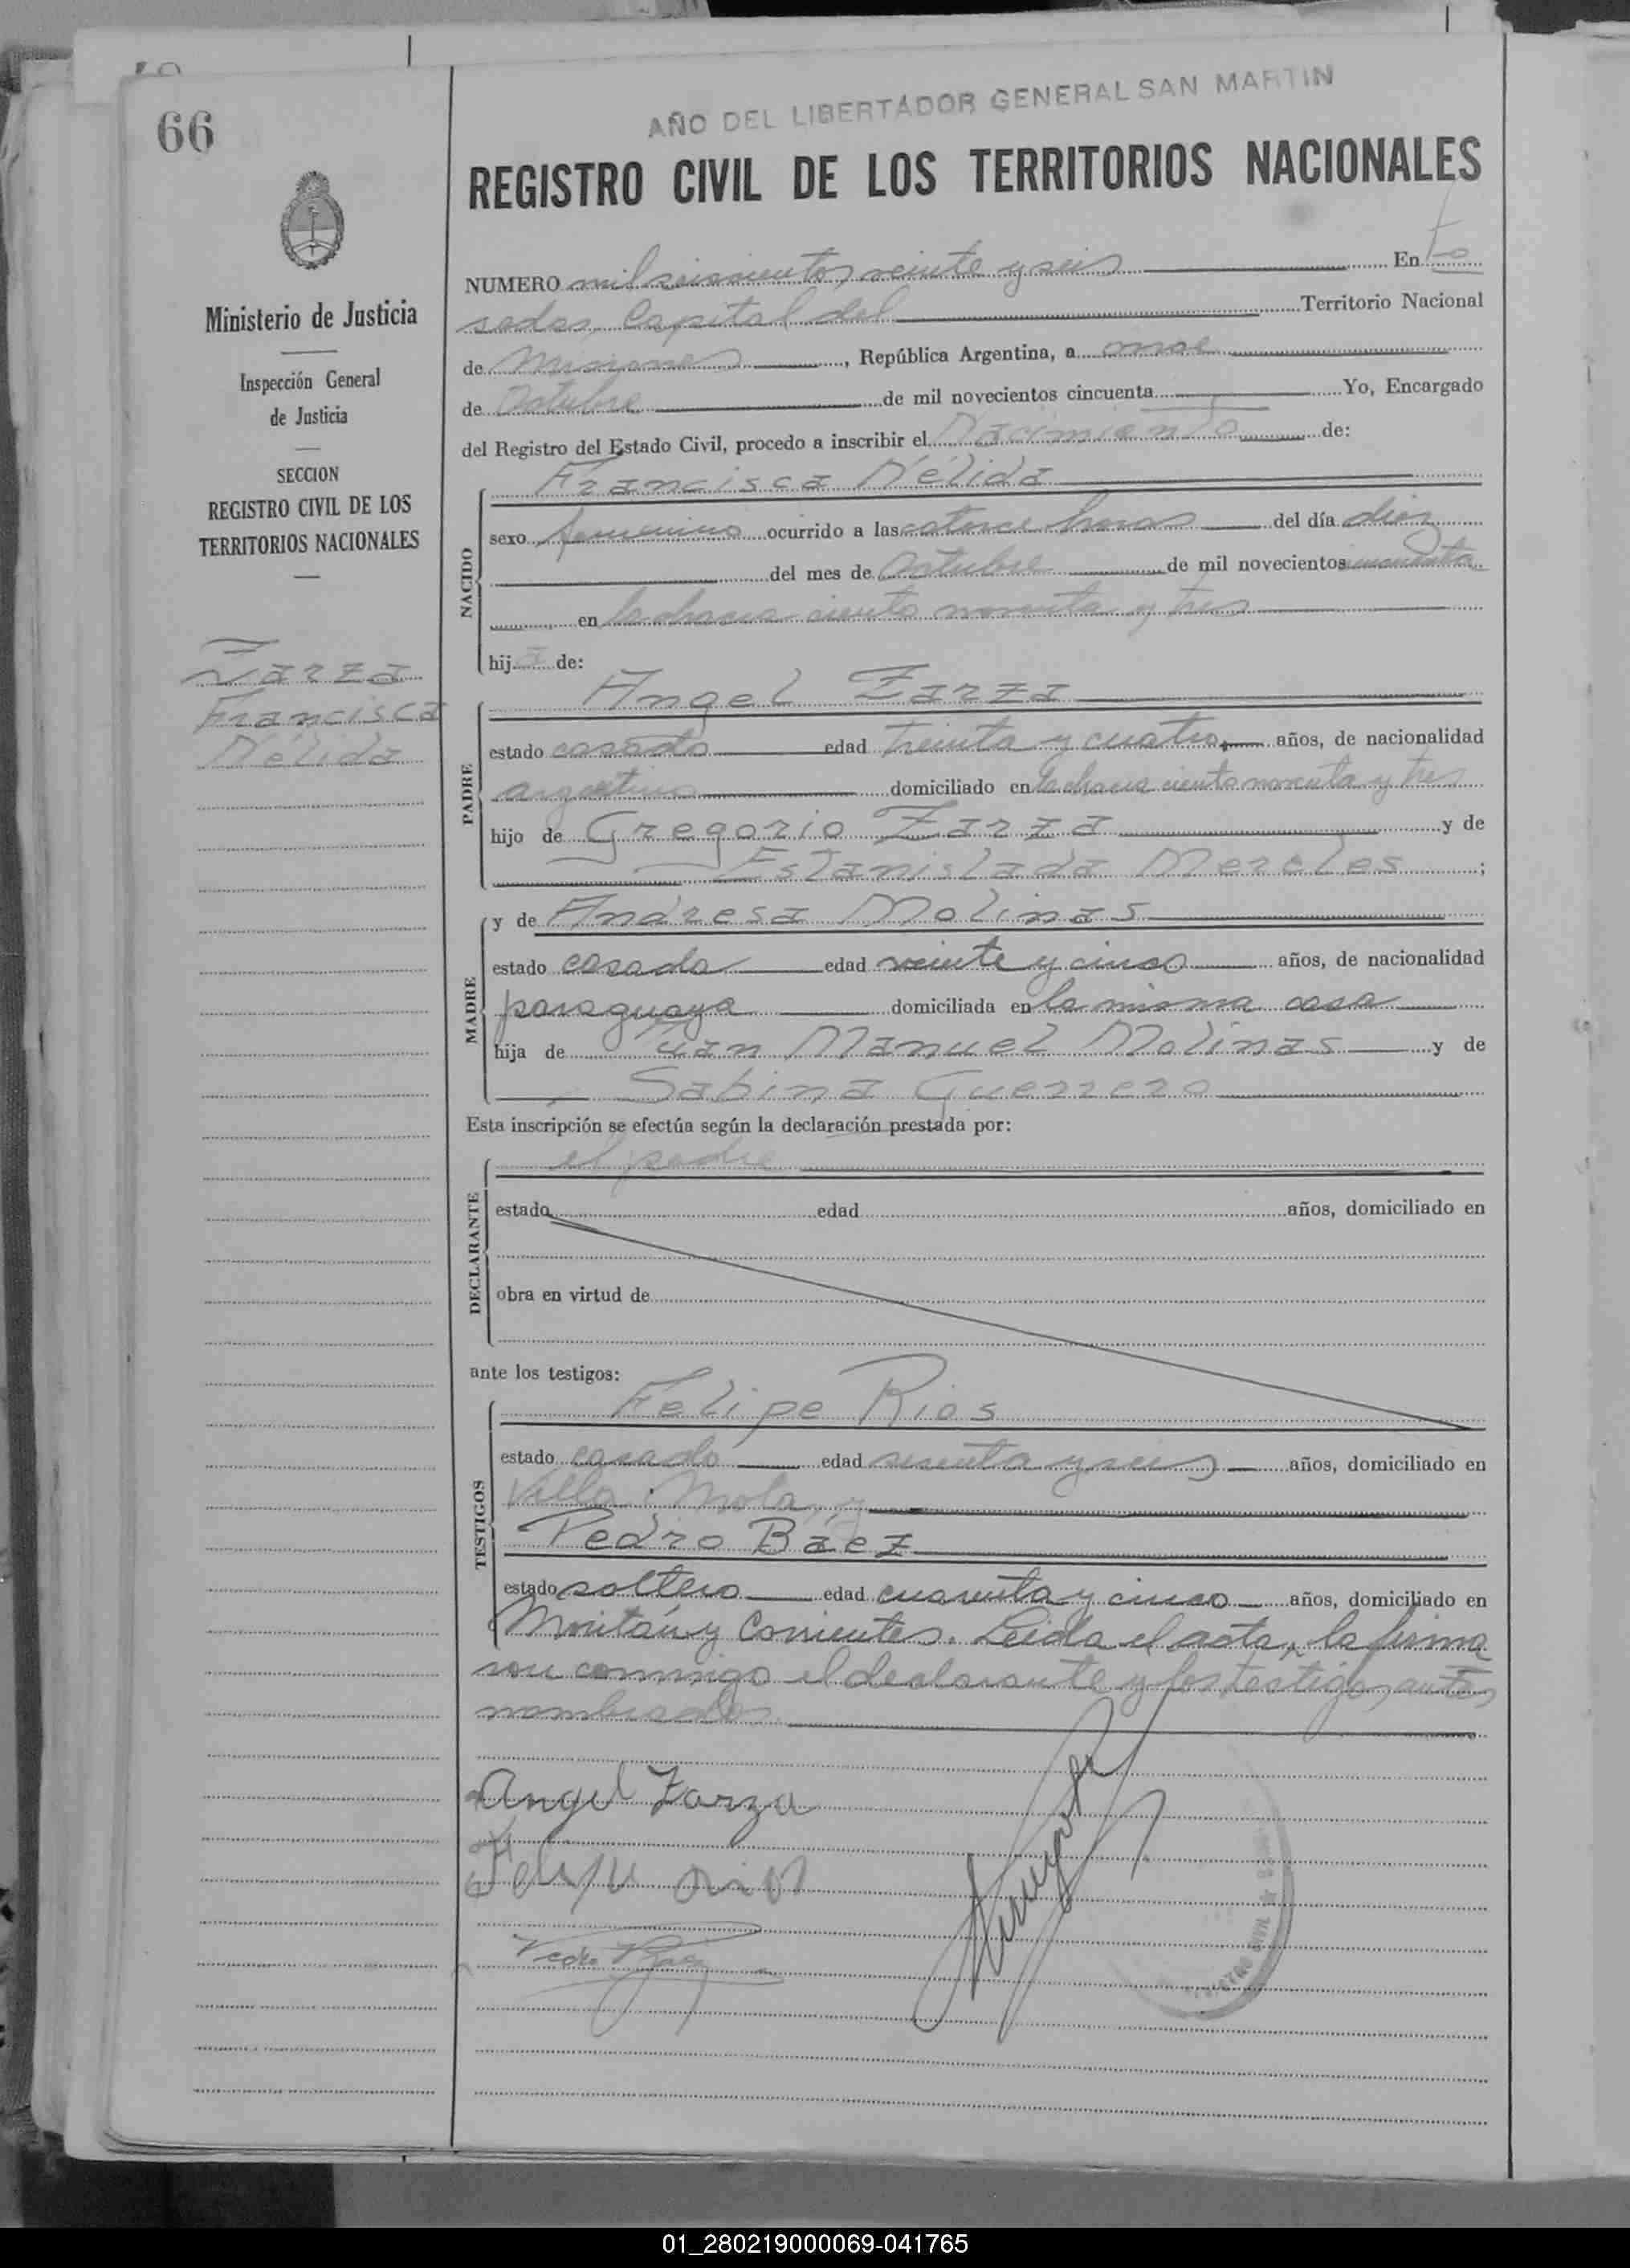 66
AÑO DEL LIBERTADOR GENERAL SAN MARTIN
REGISTRO CIVIL DE LOS TERRITORIOS NACIONALES
Ministerio de Justicia
Inspección General
de Justicia
SECCION
REGISTRO CIVIL DE LOS
TERRITORIOS NACIONALES
Zarza
Francisca
Nélida
NUMERO mil seiscientos veinte y seis En Po
sadas, Capital del Territorio Nacional
de Misiones, República Argentina, a once
de Octubre de mil novecientos cincuenta Yo, Encargado
del Registro del Estado Civil, procedo a inscribir el Nacimiento de:
NACIDO
Francisca Nélida
sexo femenino ocurrido a las catorce horas del día diez
del mes de Octubre de mil novecientos cincuenta
en la chacra ciento noventa y tres
hija de:
PADRE
Angel Zarza
estado casado edad treinta y cuatro años, de nacionalidad
argentino domiciliado en la chacra ciento noventa y tres
hijo de Gregorio Zarza y de
Estanislada Mereles;
MADRE
y de Andresa Molinas
estado casada edad veinte y cinco años, de nacionalidad
paraguaya domiciliada en la misma casa
hija de Juan Manuel Molinas y de
Sabina Guerrero
Esta inscripción se efectúa según la declaración prestada por:
DECLARANTE
el padre
estado edad años, domiciliado en
obra en virtud de
ante los testigos:
TESTIGOS
Felipe Rios
estado casado edad sesenta y seis años, domiciliado en
Villa Mola, y
Pedro Báez
estado soltero edad cuarenta y cinco años, domiciliado en
y Corrientes. Leida el acta, la firma
ron conmigo el declarante y los testigos antes
nombrados.
Angel Zarza
Felipe Rios
Pedro Báez
01_280219000069-041765